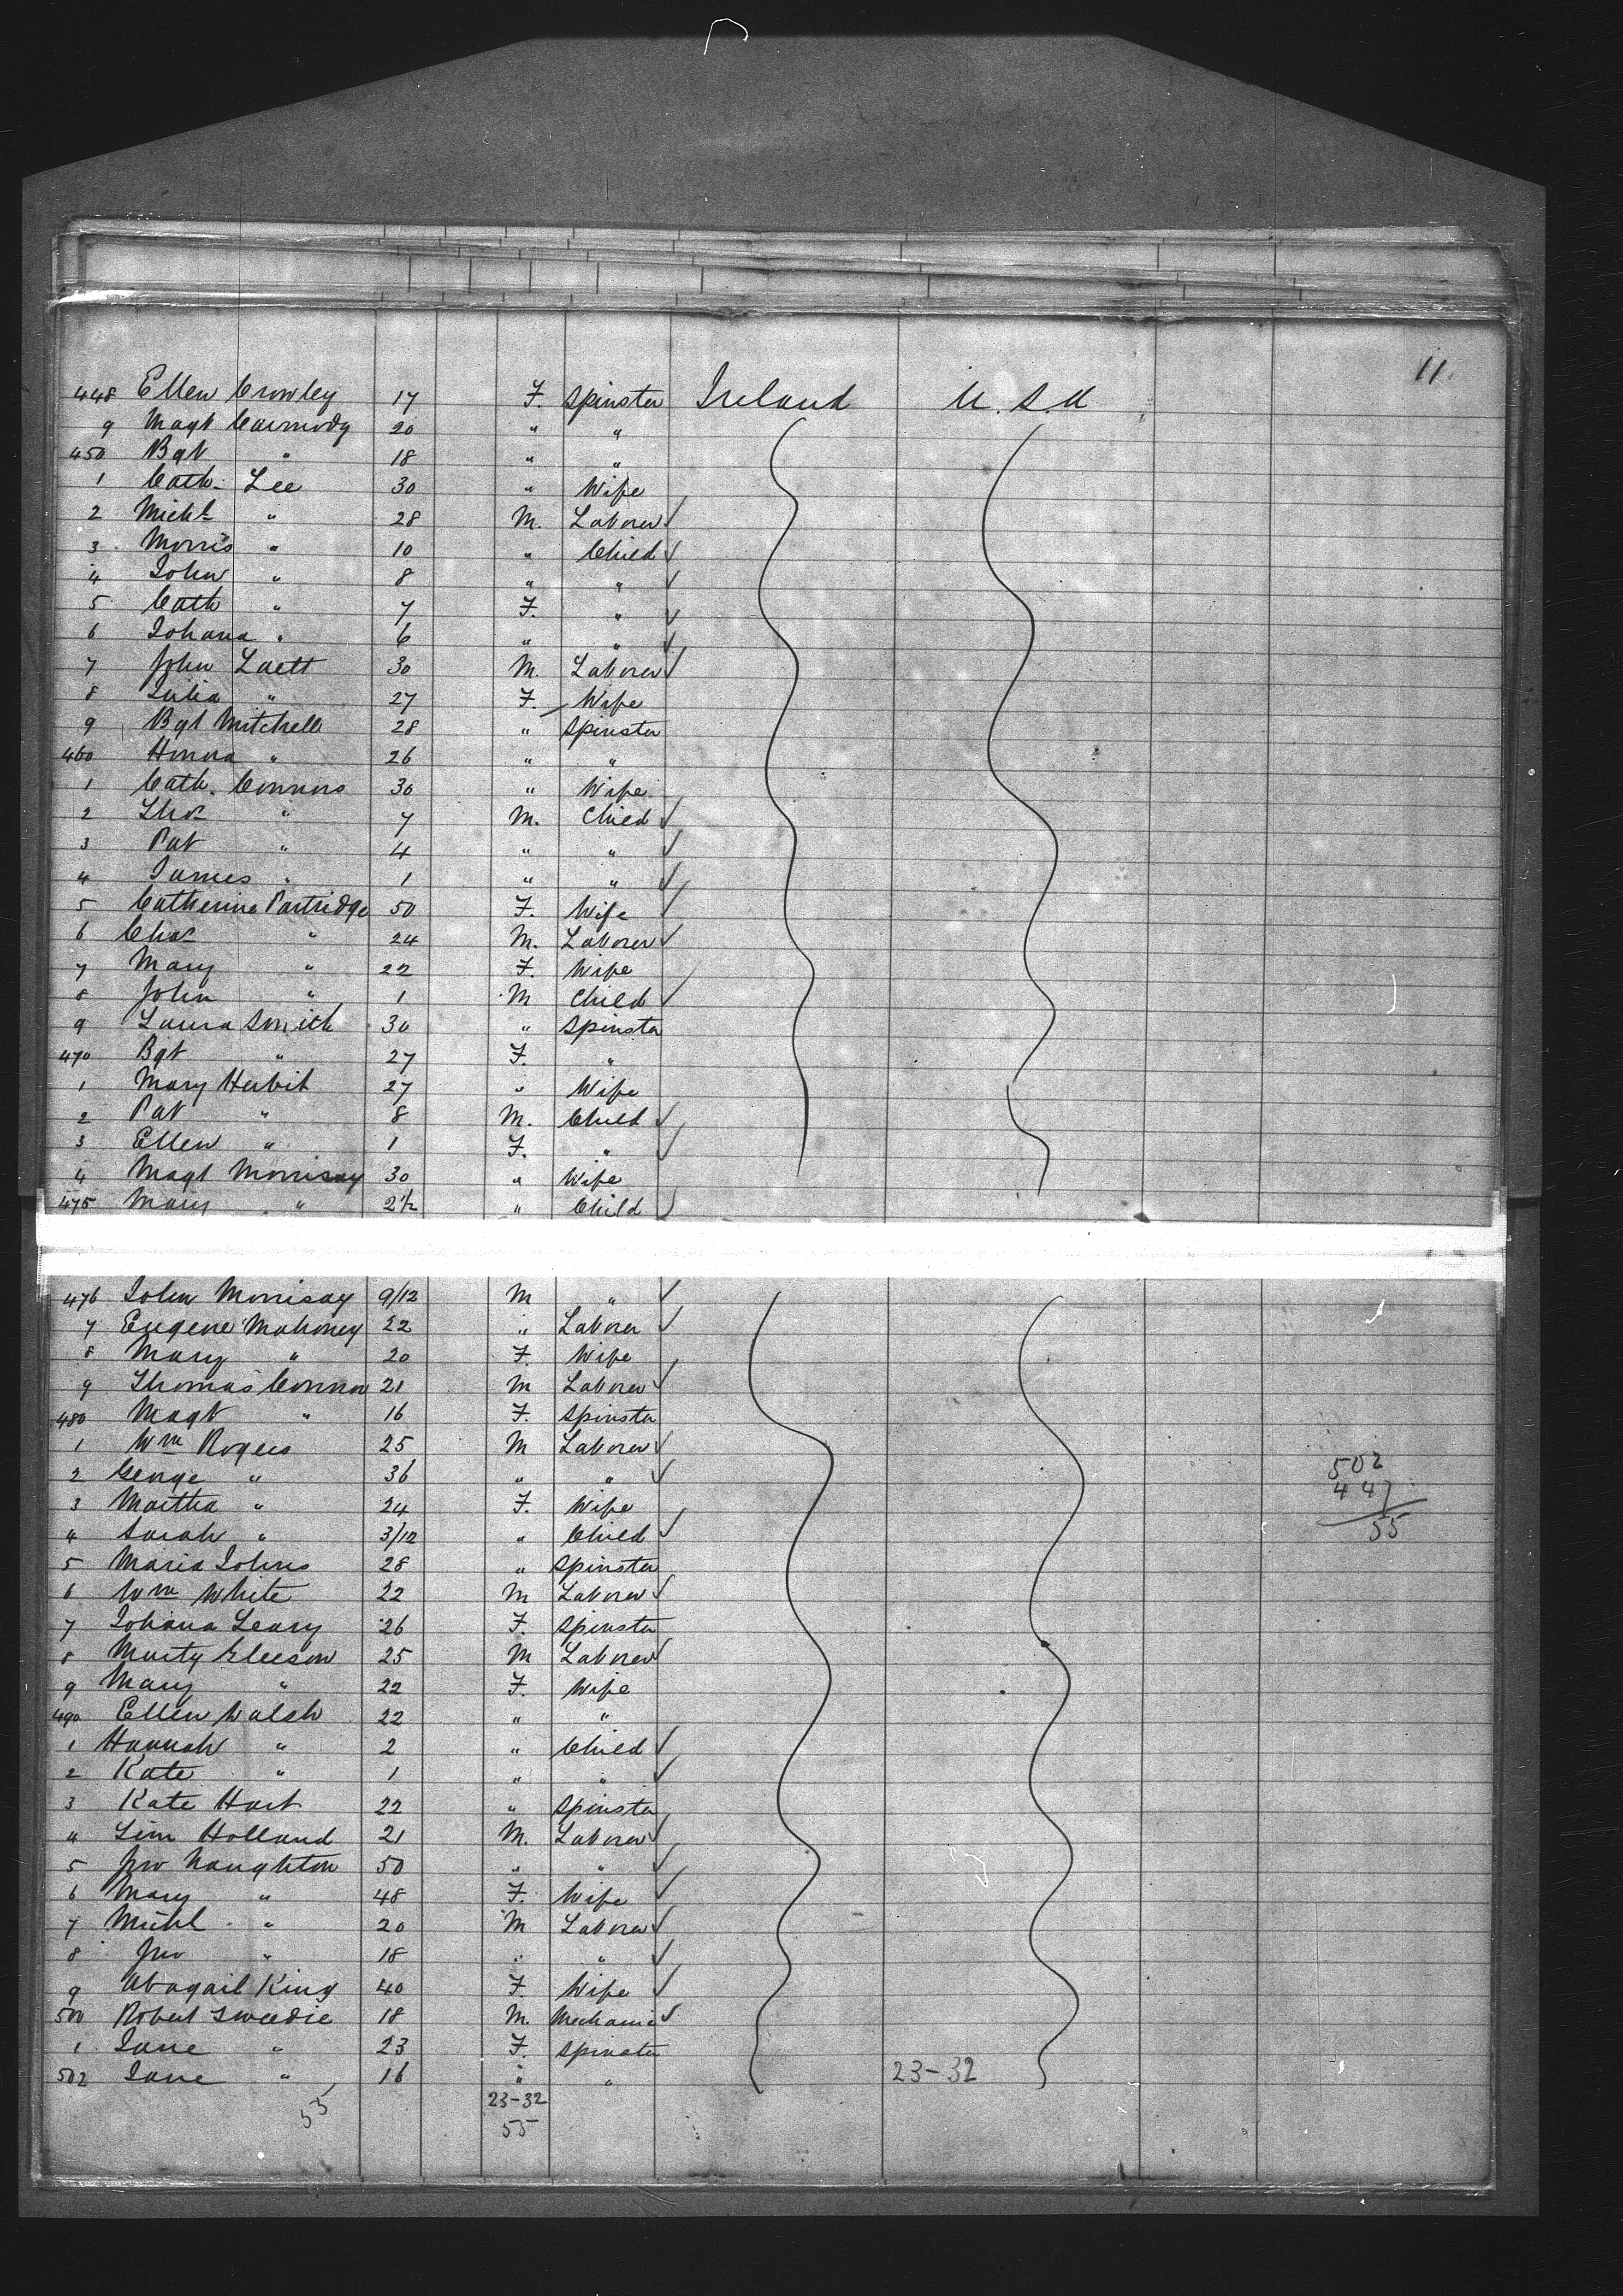 11.
448 Ellen Crowley 17 F. Spinster Ireland U.S.A
9 Magt Carmody 20 " "
450 Bgt " 18 " "
1 Cath. Lee 30 " Wife
2 Michl " 28 M. Laborer ✓
3 Morris " 10 " Child ✓
4 John " 8 " " ✓
5 Cath " 7 F. " ✓
6 Johana " 6 " " ✓
7 John Laett 30 M. Laborer ✓
8 Julia " 27 F. Wife
9 Bgt Mitchell 28 " Spinster
460 Honora " 26 " "
1 Cath. Connors 30 " Wife
2 Thos " 7 M. Child ✓
3 Pat " 4 " " ✓
4 James " 1 " " ✓
5 Catherine Partridge 50 F. Wife ✓
6 Chas " 24 M. Laborer ✓
7 Mary " 22 F. Wife
8 John " 1 M Child ✓
9 Laura Smith 30 " Spinster
470 Bgt " 27 F. "
1 Mary Herbit 27 " Wife
2 Pat " 8 M. Child ✓
3 Ellen " 1 F. " ✓
4 Magt Morrisay 30 " Wife
475 Mary " 2½ " Child ✓
476 John Morrisay 9/12 M " ✓
7 Eugene Mahoney 22 " Laborer ✓
8 Mary " 20 F. Wife
9 Thomas Connor 21 M Laborer ✓
480 Magt " 16 F. Spinster
1 Wm Rogers 25 M Laborer ✓
2 George " 36 " " ✓ 502
3 Martha " 24 F. Wife 447
4 Sarah " 3/12 " Child ✓ 55
5 Maria Johns 28 " Spinster
6 Wm White 22 M Laborer ✓
7 Johana Leary 26 F. Spinster
8 Marty Gleeson 25 M Laborer ✓
9 Mary " 22 F. Wife
490 Ellen Walsh 22 " "
1 Hannah " 2 " Child ✓
2 Kate " 1 " " ✓
3 Kate Hart 22 " Spinster
4 Tim Holland 21 M. Laborer ✓
5 Jno Naughton 50 " " ✓
6 Mary " 48 F. Wife ✓
7 Michl " 20 M Laborer ✓
8 Jno " 18 " " ✓
9 Abagail King 40 F. Wife ✓
500 Robert Tweedie 18 M. Mechanic ✓
1 Jane " 23 F. Spinster
502 Jane " 16 " " 23-32
55 23-32
55